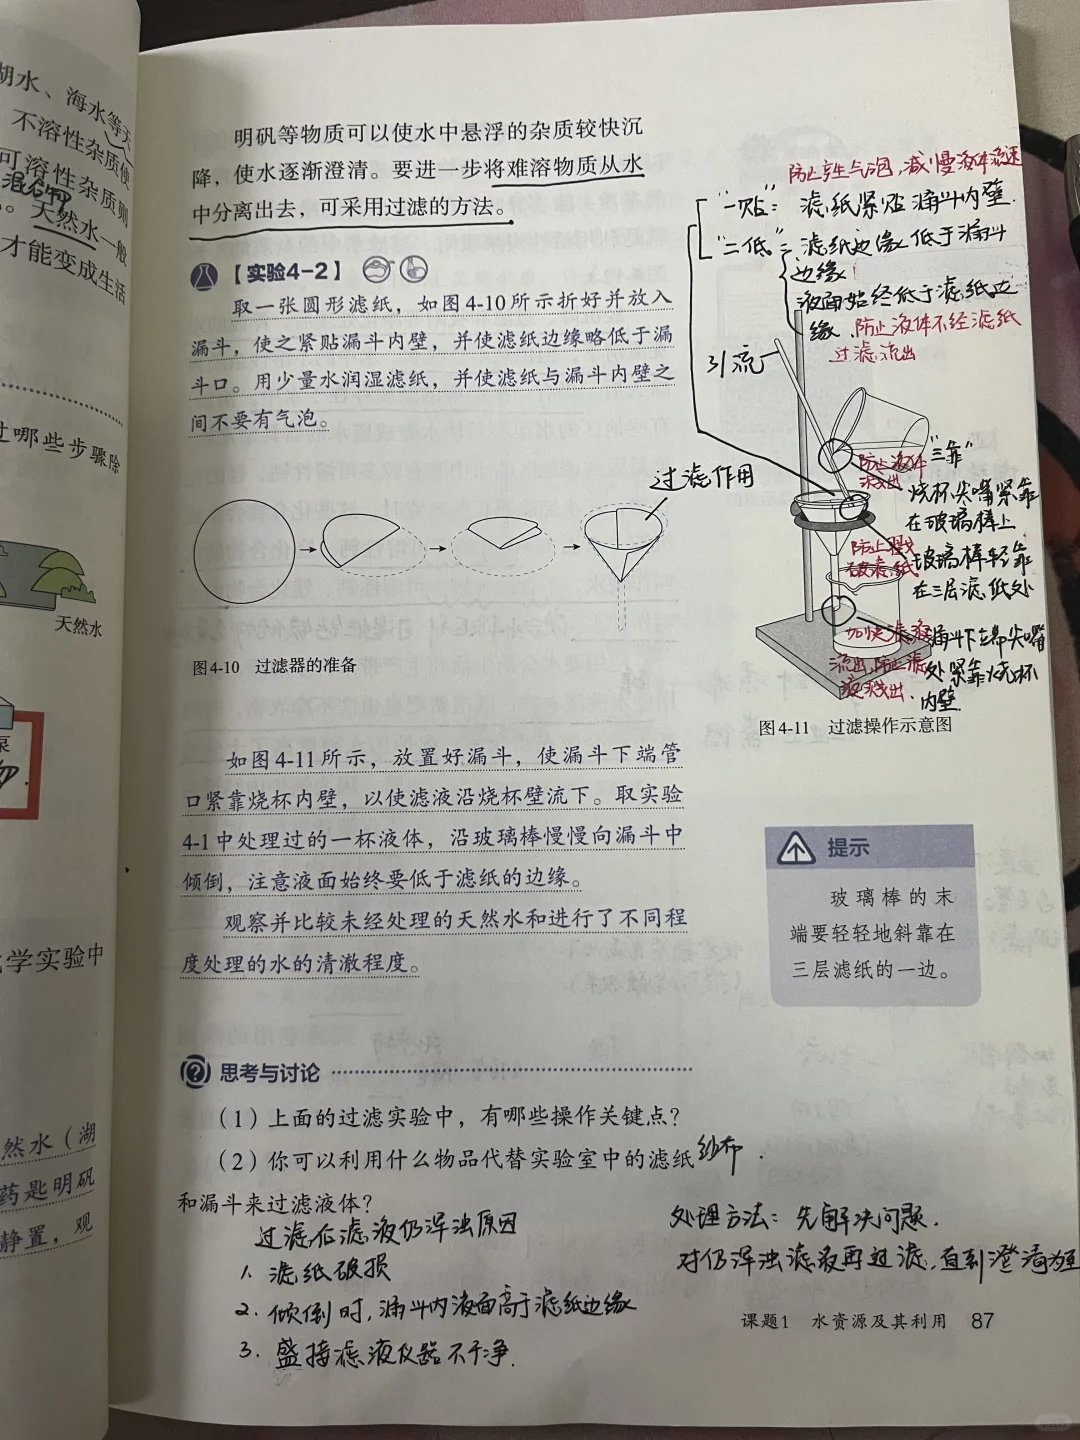 湖水、海水等天
不溶性杂质使
可溶性杂质则
混合物
。天然水一般
才能变成生活
过哪些步骤除
天然水
泵
物
学实验中
然水（湖
药匙明矾
静置，观
明矾等物质可以使水中悬浮的杂质较快沉
降，使水逐渐澄清。要进一步将难溶物质从水
中分离出去，可采用过滤的方法。
【实验4-2】
取一张圆形滤纸，如图4-10所示折好并放入
漏斗，使之紧贴漏斗内壁，并使滤纸边缘略低于漏
斗口。用少量水润湿滤纸，并使滤纸与漏斗内壁之
间不要有气泡。
过滤作用
图4-10 过滤器的准备
防止产生气泡，减慢液体流速
"一贴"：滤纸紧贴漏斗内壁.
"二低"：滤纸边缘低于漏斗
边缘
液面始终低于滤纸边
缘.防止液体不经滤纸
过滤流出
引流
"三靠"
防止液体
溅出
烧杯尖嘴紧靠
在玻璃棒上
防止戳
破滤纸
玻璃棒轻靠
在三层滤纸处
加快滤液
流出,防止滤
液溅出.
漏斗下端尖嘴
处紧靠烧杯
内壁.
图4-11 过滤操作示意图
如图4-11所示，放置好漏斗，使漏斗下端管
口紧靠烧杯内壁，以使滤液沿烧杯壁流下。取实验
4-1中处理过的一杯液体，沿玻璃棒慢慢向漏斗中
倾倒，注意液面始终要低于滤纸的边缘。
观察并比较未经处理的天然水和进行了不同程
度处理的水的清澈程度。
提示
玻璃棒的末
端要轻轻地斜靠在
三层滤纸的一边。
思考与讨论
（1）上面的过滤实验中，有哪些操作关键点？
（2）你可以利用什么物品代替实验室中的滤纸
纱布.
和漏斗来过滤液体？
过滤后滤液仍浑浊原因
1. 滤纸破损
2. 倾倒时,漏斗内液面高于滤纸边缘
3. 盛接滤液仪器不干净.
处理方法：先解决问题.
对仍浑浊滤液再过滤,直到澄清为止
课题1 水资源及其利用 87